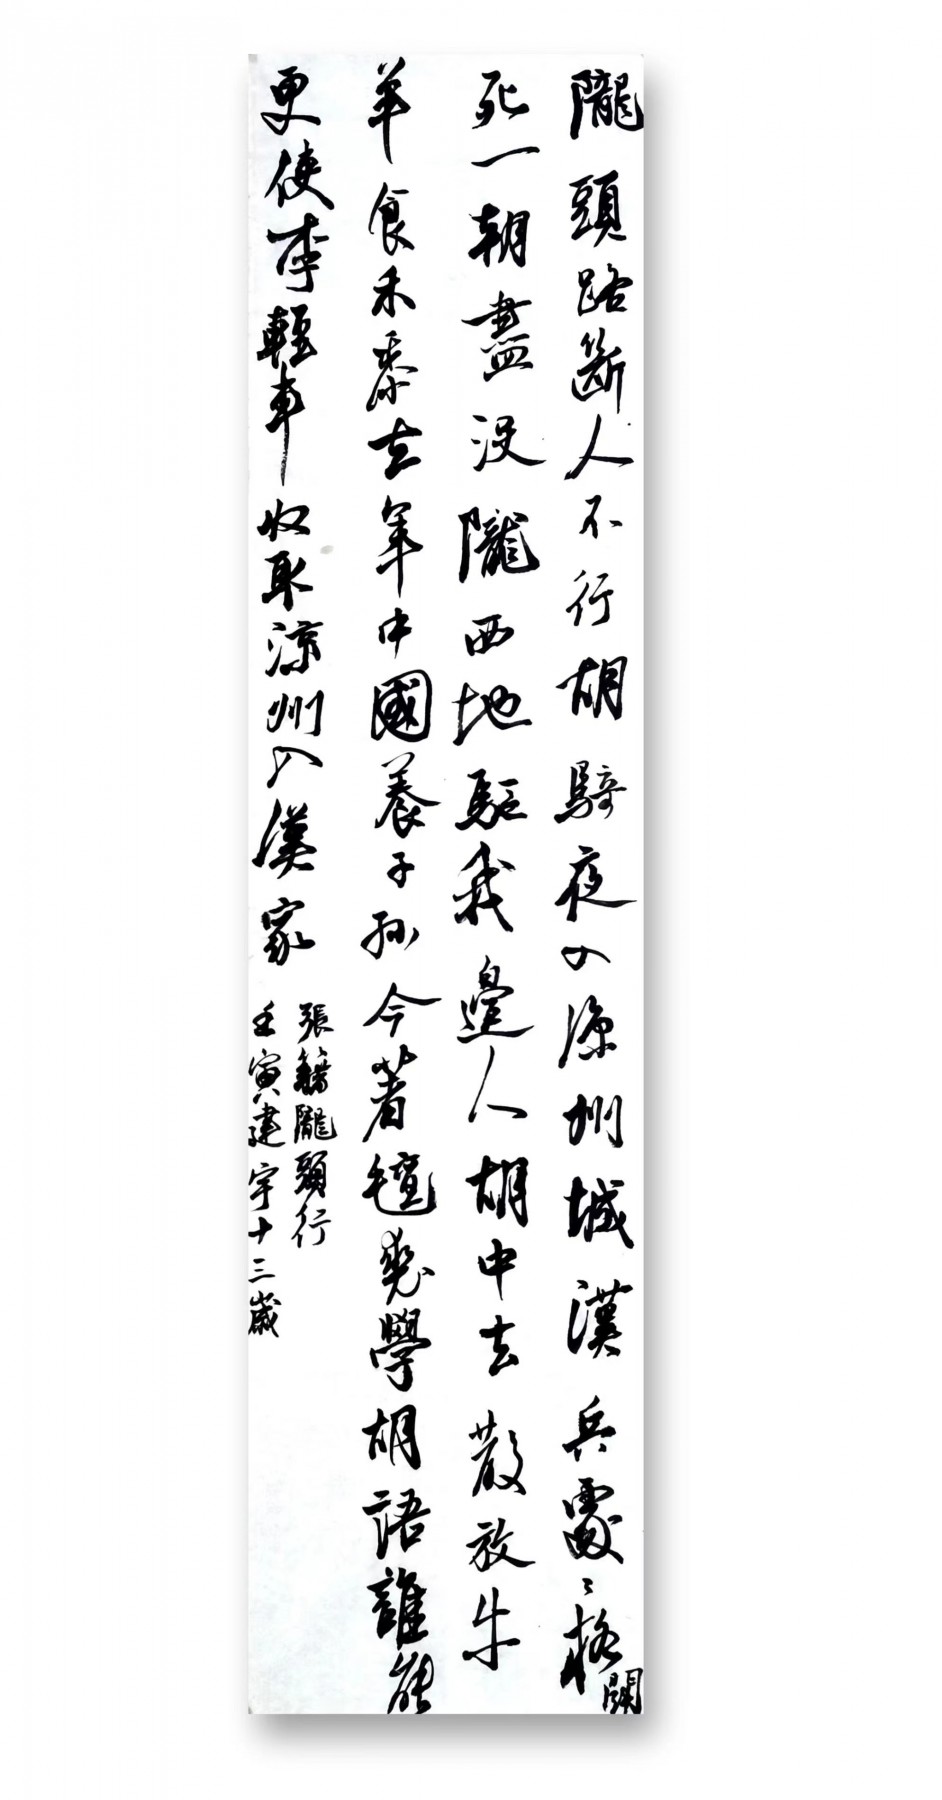 隴頭路斷人不行胡騎夜入涼州城漢兵處〻格鬪
死一朝盡没隴西地驅我邊人胡中去散放牛
羊食禾黍去年中國養子孫今著氊裘學胡語誰能
更使李輕車收取涼州入漢家
張籍隴頭行
壬寅建宇十三歲